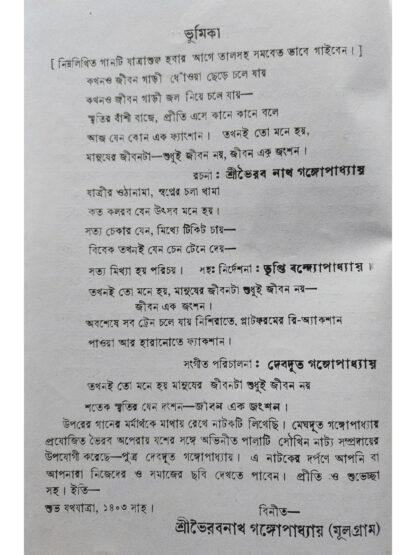 ভূমিকা
[ নিম্নলিখিত গানটি যাত্রাশুরু হবার আগে তালসহ সমবেত ভাবে গাইবেন। ]
কখনও জীবন গাড়ী ধোঁওয়া ছেড়ে চলে যায়
কখনও জীবন গাড়ী জল নিয়ে চলে যায়—
স্মৃতির বাঁশী বাজে, প্রীতি এসে কানে কানে বলে
আজ যেন কোন এক ফ্যাংশান। তখনই তো মনে হয়,
মানুষের জীবনটা—শুধুই জীবন নয়, জীবন এক জংশন।
রচনা : শ্রীভৈরব নাথ গঙ্গোপাধ্যায়
যাত্রীর ওঠানামা, স্বপ্নের চলা থামা
কত কলরব যেন উৎসব মনে হয়।
সত্য চেকার যেন, মিথ্যে টিকিট চায়—
বিবেক তখনই যেন চেন টেনে দেয়—
সত্য মিথ্যা হয় পরিচয়। সহঃ নির্দেশনা : তৃপ্তি বন্দ্যোপাধ্যায়।
তখনই তো মনে হয়, মানুষের জীবনটা শুধুই জীবন নয়—
জীবন এক জংশন।
অবশেষে সব ট্রেন চলে যায় নিশিরাতে, প্লাটফরমের রি-অ্যাকশান
পাওয়া আর হারানোতে ফ্যাকশান।
সংগীত পরিচালনা : দেবদূত গঙ্গোপাধ্যায়
তখনই তো মনে হয় মানুষের জীবনটা শুধুই জীবন নয়
শতেক স্মৃতির যেন দংশন—জীবন এক জংশন।
উপরের গানের মর্মার্থকে মাথায় রেখে নাটকটি লিখেছি। মেঘদূত গঙ্গোপাধ্যায়
প্রযোজিত ভৈরব অপেরায় যশের সঙ্গে অভিনীত পালাটি সৌখিন নাট্য সম্প্রদায়ের
উপযোগী করেছে—পুত্র দেবদূত গঙ্গোপাধ্যায়। এ নাটকের দর্পণে আপনি বা
আপনারা নিজেদের ও সমাজের ছবি দেখতে পাবেন। প্রীতি ও শুভেচ্ছা
সহ। ইতি—
শুভ রথযাত্রা, ১৪০৩ সাল। বিনীত—
শ্রীভৈরবনাথ গঙ্গোপাধ্যায় (মূলগ্রাম)